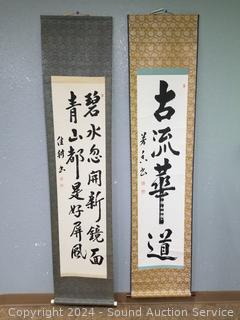 碧水忽開新鏡面
青山都是好屏風
佳研書
古流華道
芳香書
Copyright © 2024 - Sound Auction Service